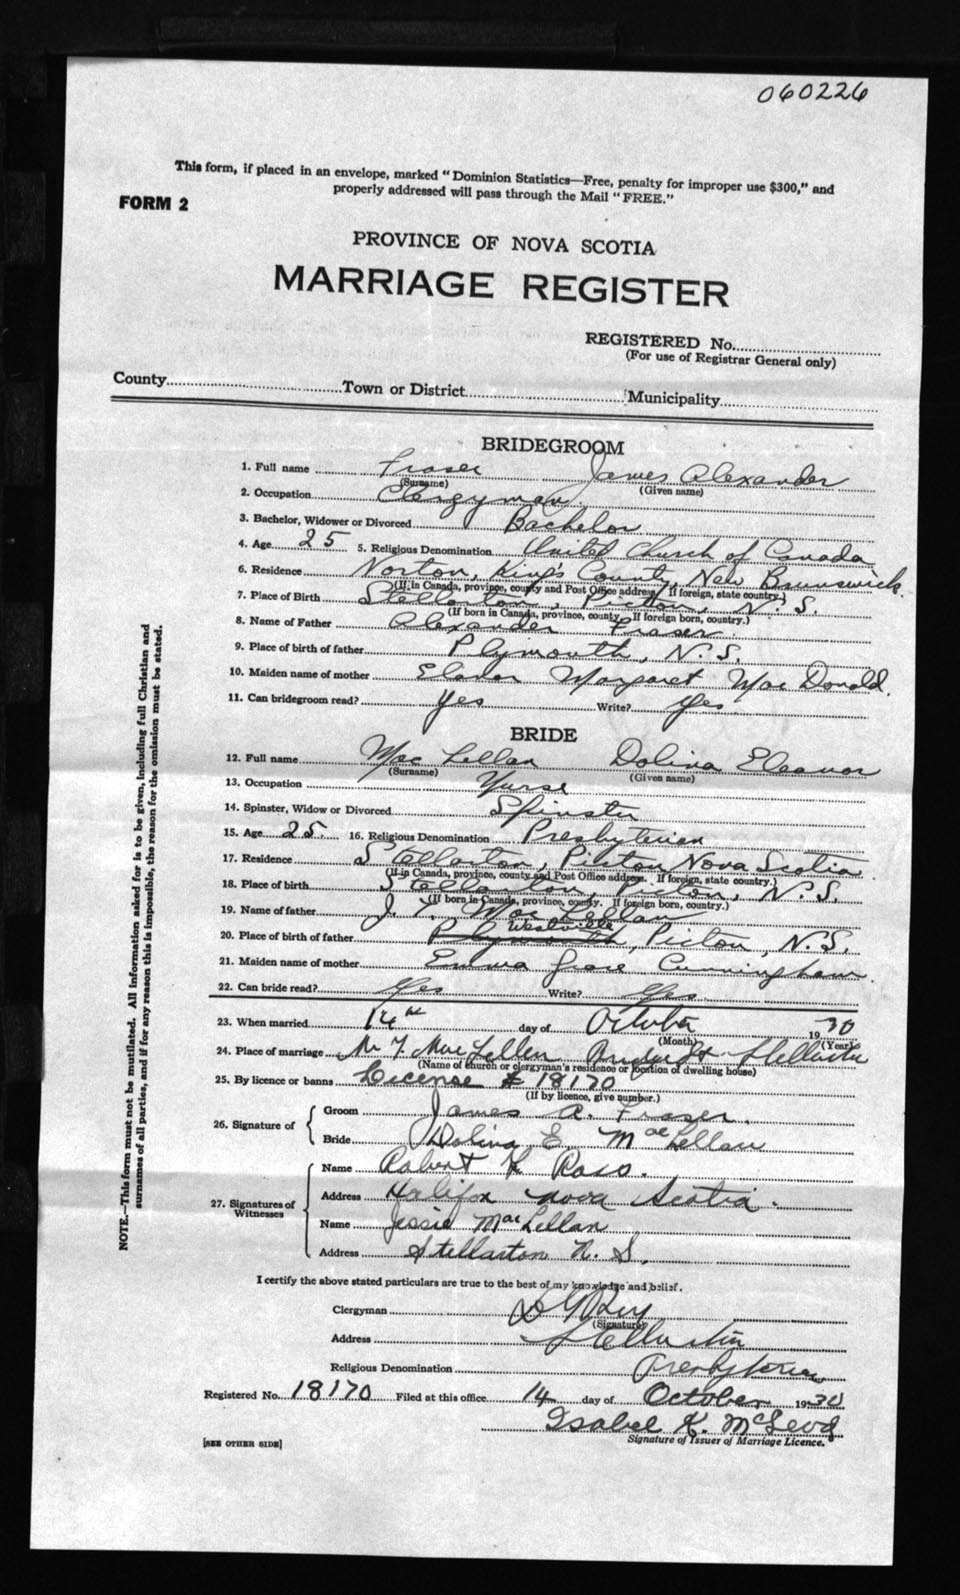 060226
This form, if placed in an envelope, marked "Dominion Statistics—Free, penalty for improper use $300," and
properly addressed will pass through the Mail "FREE."
FORM 2
PROVINCE OF NOVA SCOTIA
MARRIAGE REGISTER
REGISTERED No.
(For use of Registrar General only)
County Town or District Municipality
BRIDEGROOM
1. Full name Fraser James Alexander
(Surname) (Given name)
2. Occupation Clergyman
3. Bachelor, Widower or Divorced Bachelor
4. Age 25 5. Religious Denomination United Church of Canada
6. Residence Norton, King's County, New Brunswick
(If in Canada, province, county and Post Office address. If foreign, state country.)
7. Place of Birth Stellarton, Pictou, N.S.
(If born in Canada, province, county. If foreign born, country.)
8. Name of Father Alexander Fraser
9. Place of birth of father Plymouth, N.S.
10. Maiden name of mother Margaret Mac Donald.
11. Can bridegroom read? Yes Write? Yes.
BRIDE
12. Full name Mac Lellan Dolina Eleanor
(Surname) (Given name)
13. Occupation Nurse
14. Spinster, Widow or Divorced Spinster
15. Age 25. 16. Religious Denomination Presbyterian
17. Residence Stellarton, Pictou Nova Scotia
(If in Canada, province, county and Post Office address. If foreign, state country.)
18. Place of birth Stellarton, Pictou, N.S.
(If born in Canada, province, county. If foreign born, country.)
19. Name of father J. T. Mac Lellan
Westville
20. Place of birth of father Plymouth, Pictou, N.S.
21. Maiden name of mother Emma Grace Cunningham
22. Can bride read? Yes Write? Yes.
23. When married 14th day of October 1930
(Month) (Year)
24. Place of marriage MacLellan Stellarton
(Name of church or clergyman's residence or location of dwelling house)
25. By licence or banns License # 18170
(If by licence, give number.)
26. Signature of
Groom James A. Fraser.
Bride Dolina E. MacLellan
27. Signatures of Witnesses
Name Robert Ross.
Address Halifax Nova Scotia.
Name Jessie MacLellan
Address Stellarton N. S.
I certify the above stated particulars are true to the best of my knowledge and belief.
Clergyman
(Signature)
Address Stellarton
Religious Denomination Presbyterian
Registered No. 18170 Filed at this office 14 day of October 1930
Isabel K. McLeod
Signature of Issuer of Marriage Licence.
[SEE OTHER SIDE]
NOTE.—This form must not be mutilated. All information asked for is to be given, including full Christian and
surnames of all parties, and if for any reason this is impossible, the reason for the omission must be stated.